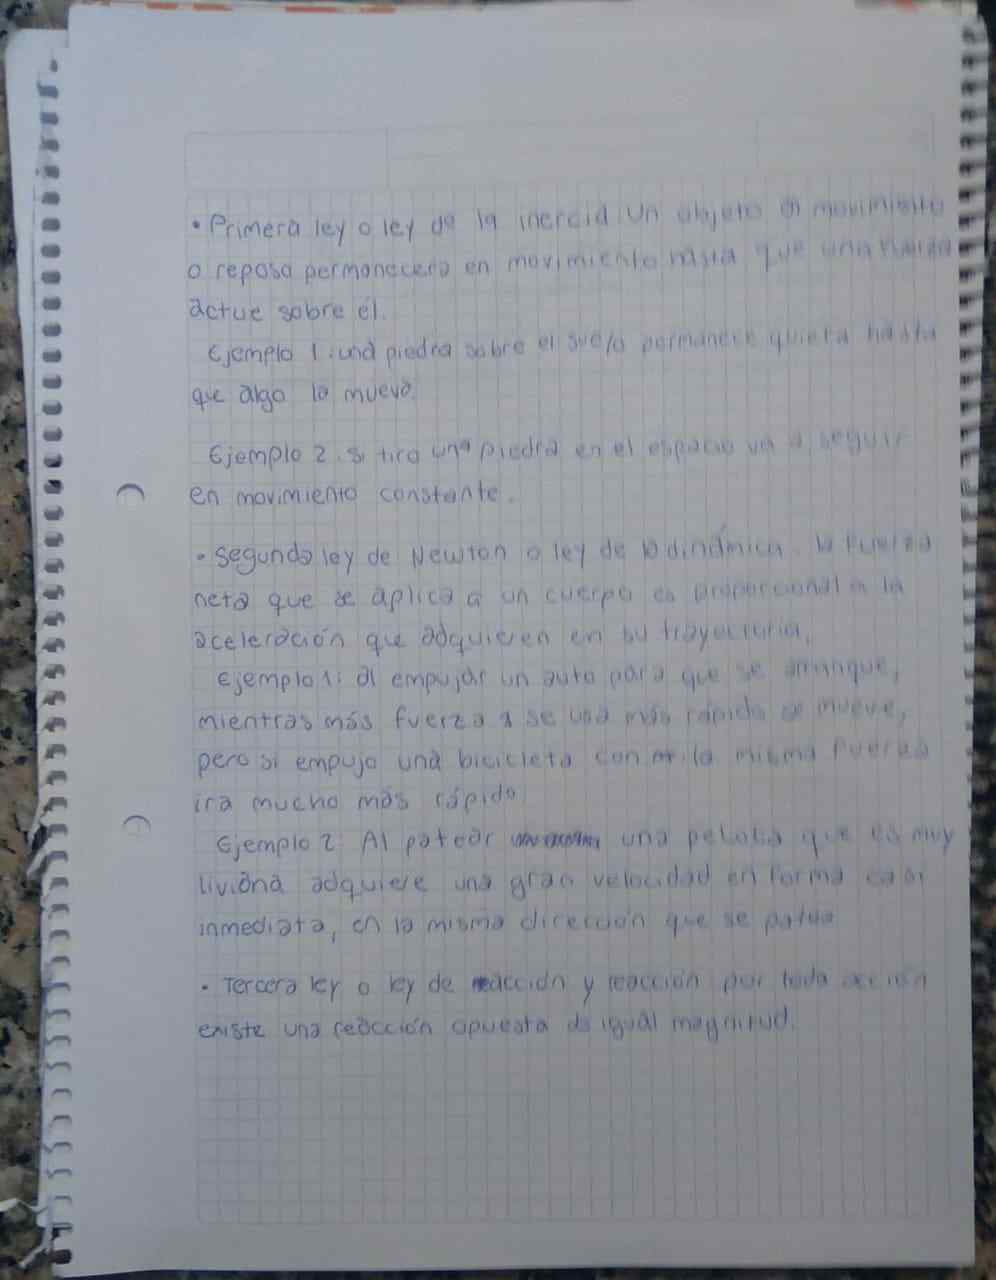 • Primera ley o ley de la inercia Un objeto en movimiento
o reposo permanecera en movimiento hasta que una fuerza
actue sobre él.
Ejemplo 1: una piedra sobre el suelo permanece quieta hasta
que algo la mueva.
Ejemplo 2. Si tiro una piedra en el espacio va a seguir
en movimiento constante.
• Segunda ley de Newton o ley de la dinámica. la fuerza
neta que se aplica a un cuerpo es proporcional a la
aceleración que adquieren en su trayectoria.
Ejemplo 1: al empujar un auto para que se arranque,
mientras más fuerza se usa más rápido se mueve,
pero si empujo una bicicleta con la misma fuerza
ira mucho más rápido
Ejemplo 2: Al patear una pelota que es muy
liviana adquiere una gran velocidad en forma casi
inmediata, en la misma dirección que se patea
• Tercera ley o ley de acción y reacción por toda acción
existe una reacción opuesta de igual magnitud.